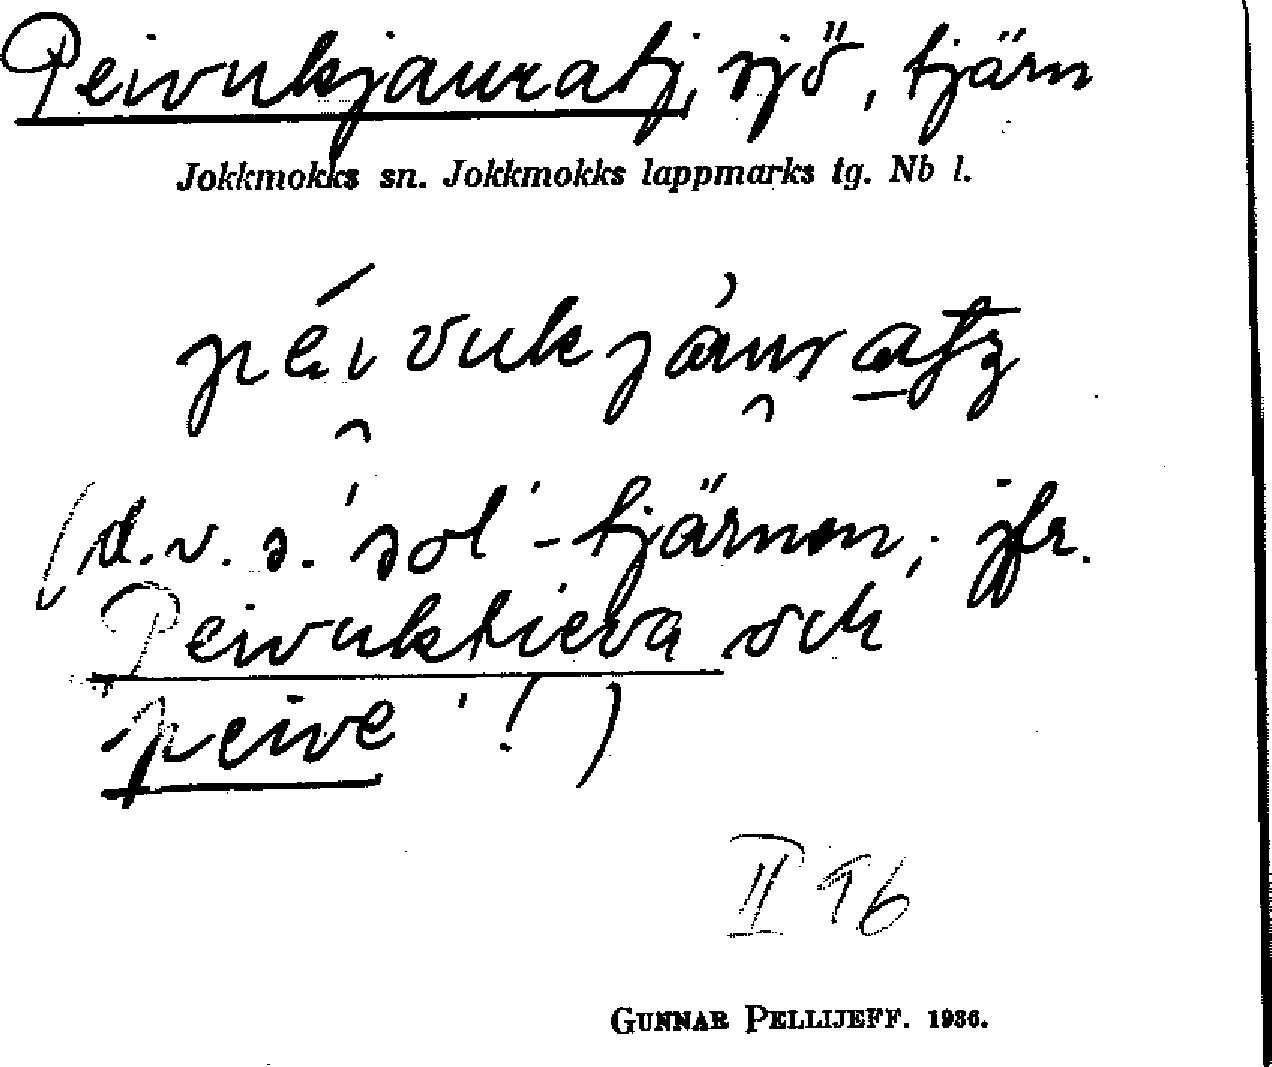 Peivukjauratj, sjö, tjärn
Jokkmokks sn. Jokkmokks lappmarks tg. Nb l.
péi̯vukjáu̯ratʒ
(d.v.s. 'sol'-tjärnen; jfr.
Peivuktieva och
peive '!)
II 96
GUNNAR PELLIJEFF. 1936.